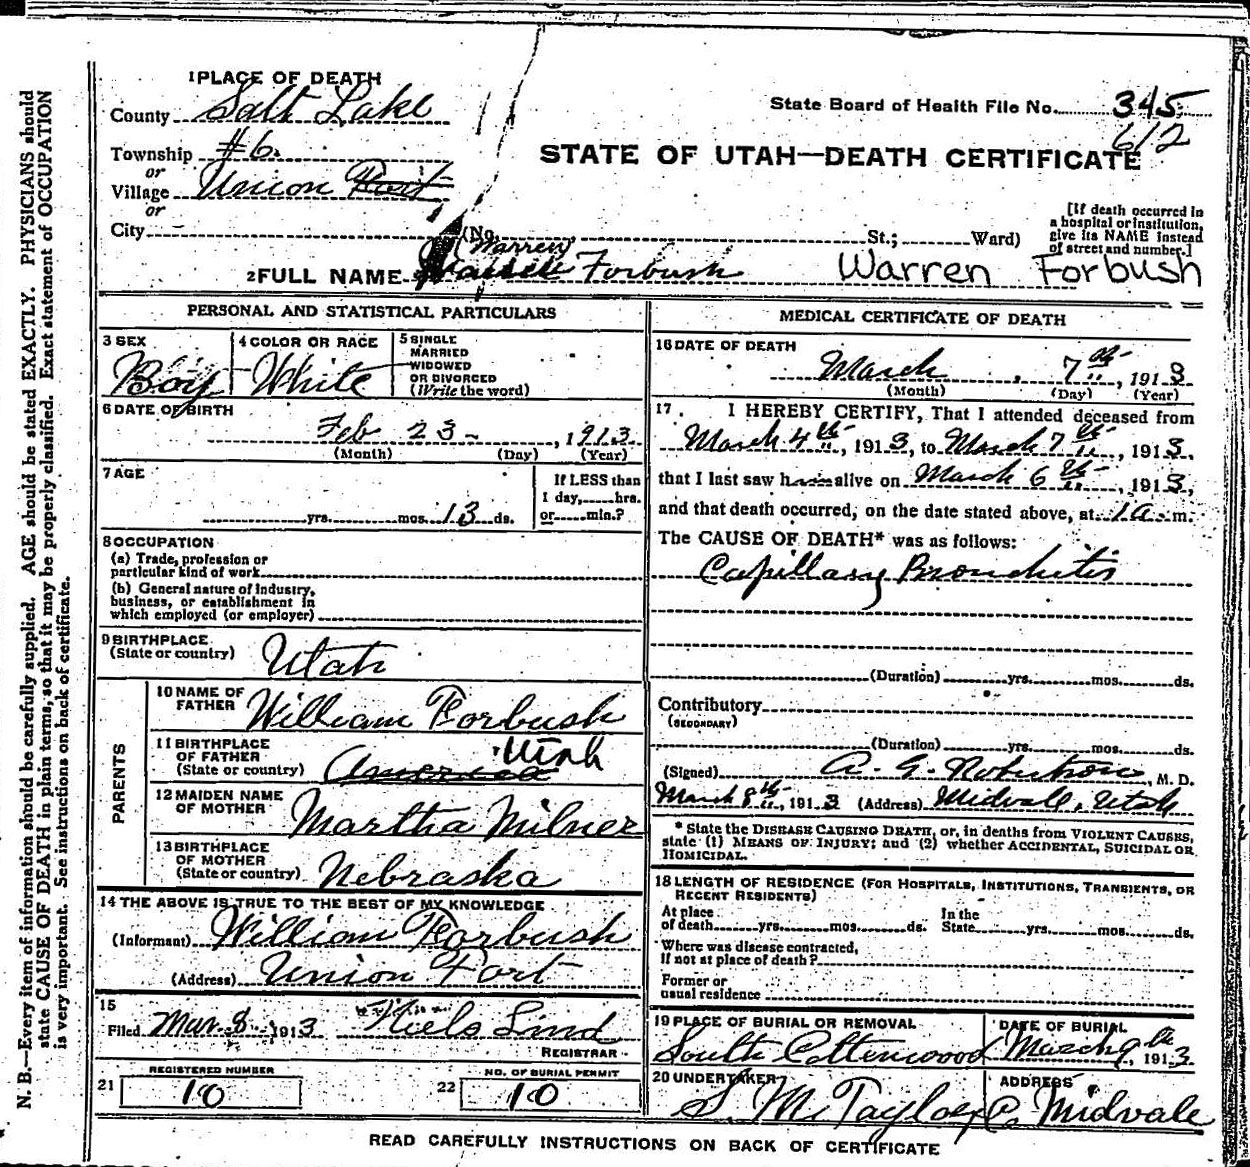 1 PLACE OF DEATH
County Salt Lake
State Board of Health File No. 345
612
Township #6.
or
Village Union Fort
or
City
STATE OF UTAH—DEATH CERTIFICATE
(No. St.; Ward)
[If death occurred in
a hospital or institution,
give its NAME instead
of street and number.]
Warren
2 FULL NAME Forbush Warren Forbush
PERSONAL AND STATISTICAL PARTICULARS
3 SEX Boy
4 COLOR OR RACE White
5 SINGLE
MARRIED
WIDOWED
OR DIVORCED
(Write the word)
6 DATE OF BIRTH
Feb 23- , 1913
(Month) (Day) (Year)
7 AGE
yrs. mos. 13 ds.
If LESS than
1 day, hrs.
or min.?
8 OCCUPATION
(a) Trade, profession or
particular kind of work
(b) General nature of industry,
business, or establishment in
which employed (or employer)
9 BIRTHPLACE
(State or country) Utah
PARENTS
10 NAME OF
FATHER William Forbush
11 BIRTHPLACE
OF FATHER
(State or country) America Utah
12 MAIDEN NAME
OF MOTHER Martha Milner
13 BIRTHPLACE
OF MOTHER
(State or country) Nebraska
14 THE ABOVE IS TRUE TO THE BEST OF MY KNOWLEDGE
(Informant) William Forbush
(Address) Union Fort
15
Filed Mar. 8 1913 Niels Lind
REGISTRAR
REGISTERED NUMBER
21 10
NO. OF BURIAL PERMIT
22 10
MEDICAL CERTIFICATE OF DEATH
16 DATE OF DEATH
March 7th , 1913
(Month) (Day) (Year)
17. I HEREBY CERTIFY, That I attended deceased from
March 4th, 1913, to March 7th, 1913,
that I last saw him alive on March 6th, 1913,
and that death occurred, on the date stated above, at 1 a m.
The CAUSE OF DEATH* was as follows:
Capillary Bronchitis
(Duration) yrs. mos. ds.
Contributory
(SECONDARY)
(Duration) yrs. mos. ds.
(Signed) A. G. Robertson, M. D.
March 8th, 1913 (Address) Midvale, Utah
* State the DISEASE CAUSING DEATH, or, in deaths from VIOLENT CAUSES,
state (1) MEANS OF INJURY; and (2) whether ACCIDENTAL, SUICIDAL OR
HOMICIDAL.
18 LENGTH OF RESIDENCE (FOR HOSPITALS, INSTITUTIONS, TRANSIENTS, OR
RECENT RESIDENTS)
At place
of death yrs. mos. ds. In the
State yrs. mos. ds.
Where was disease contracted,
If not at place of death?
Former or
usual residence
19 PLACE OF BURIAL OR REMOVAL
South Cottenwood
DATE OF BURIAL
March 9th, 1913
20 UNDERTAKER
S. M. Taylor Co.
ADDRESS
Midvale
READ CAREFULLY INSTRUCTIONS ON BACK OF CERTIFICATE
N. B.—Every item of information should be carefully supplied. AGE should be stated EXACTLY. PHYSICIANS should
state CAUSE OF DEATH in plain terms, so that it may be properly classified. Exact statement of OCCUPATION
is very important. See instructions on back of certificate.